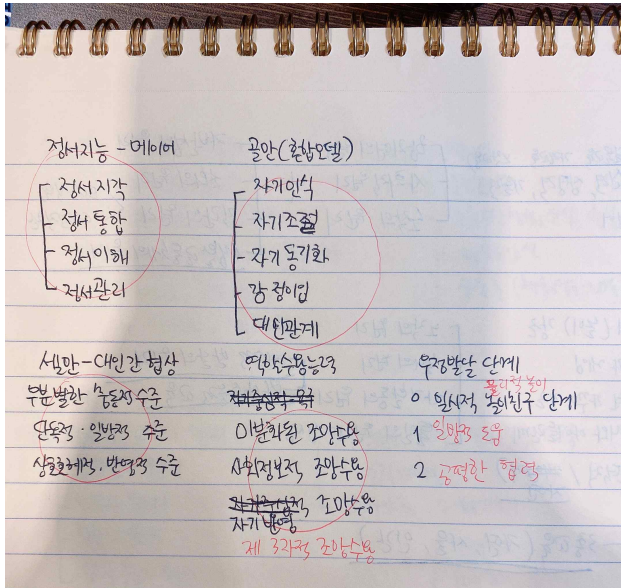 정서지능 - 메이어
정서 지각
정서 통합
정서 이해
정서 관리
골만(혼합모델)
자기인식
자기조절
자기 동기화
감정이입
대인관계
셀만 - 대인간 협상
미분별한 충동적 수준
단독적 · 일방적 수준
상호호혜적 · 반영적 수준
역할수용능력
미분화된 조망수용
사회정보적 조망수용
자기중심적 조망수용
자기반영
제 3자적 조망수용
우정발달 단계
물리적 놀이
0 일시적 놀이친구 단계
1 일방적 도움
2 공평한 협력